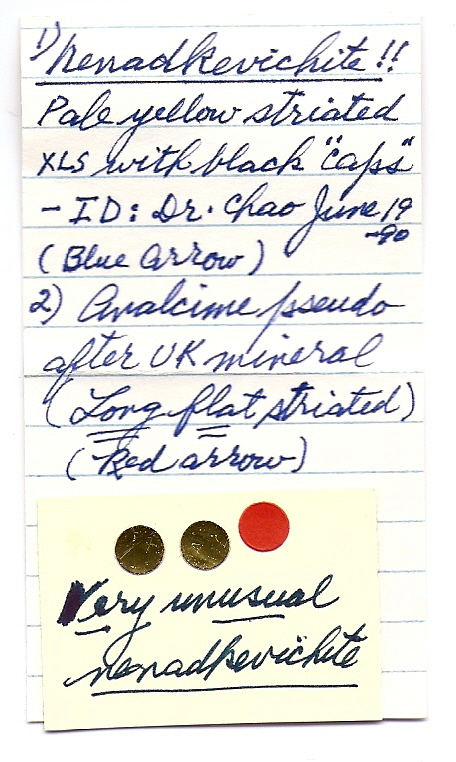 1) Nenadkevichite!!
Pale yellow striated
XLS with black "caps"
- ID: Dr. Chao June 19
-90
(Blue arrow)
2) Analcime pseudo
after UK mineral
(Long flat striated)
(Red arrow)
Very unusual
nenadkevichite